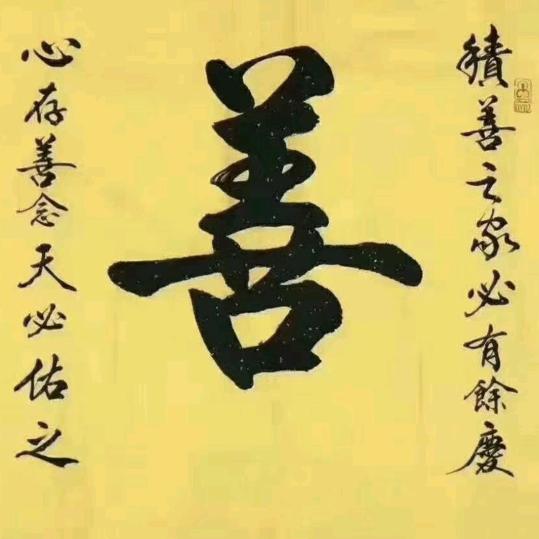 積善之家必有餘慶
善
心存善念天必佑之